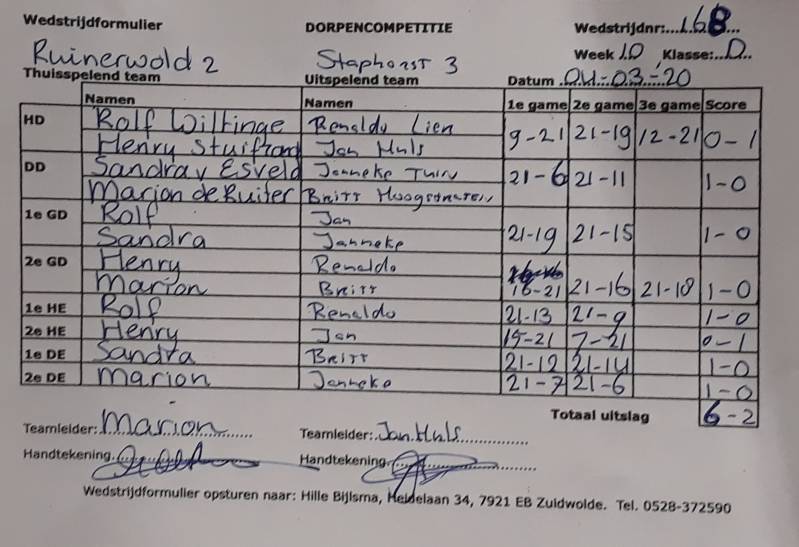 Wedstrijdformulier DORPENCOMPETITIE Wedstrijdnr:...168...
Ruinerwold 2 Staphorst 3 Week 10 Klasse:..D..
Thuisspelend team Uitspelend team Datum 04-03-20
Namen Namen 1e game 2e game 3e game Score
HD Rolf Wiltinge Renaldo Lien 9-21 21-19 12-21 0-1
Henry Jan Huls
DD Sandra v Esveld Janneke Tuin 21-6 21-11 1-0
Marion de Ruiter Britt Hoogstraten
1e GD Rolf Jan 21-19 21-15 1-0
Sandra Janneke
2e GD Henry Renaldo
Marion Britt 16-21 21-16 21-18 1-0
1e HE Rolf Renaldo 21-13 21-9 1-0
2e HE Henry Jan 15-21 7-21 0-1
1e DE Sandra Britt 21-12 21-14 1-0
2e DE Marion Janneke 21-7 21-6 1-0
Totaal uitslag 6-2
Teamleider: Marion Teamleider: Jan Huls
Handtekening Handtekening
Wedstrijdformulier opsturen naar: Hille Bijlsma, Heidelaan 34, 7921 EB Zuidwolde. Tel. 0528-372590